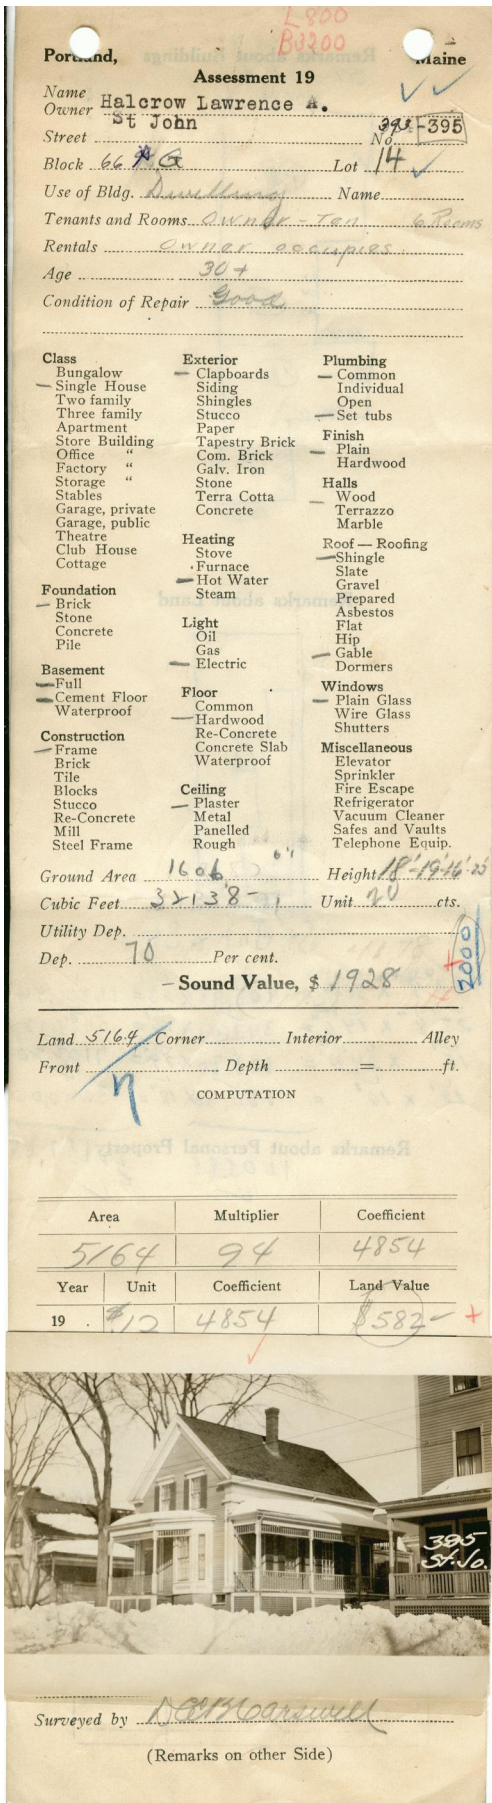 L 800
B 3200
Portland, Maine
Assessment 19
Name
Owner Halcrow Lawrence A.
Street St John No. 393-395
Block 66 G Lot 14
Use of Bldg. Dwelling Name
Tenants and Rooms Owner - Ten 6 Rooms
Rentals Owner occupies
Age 30+
Condition of Repair Good
Class
Bungalow
Single House
Two family
Three family
Apartment
Store Building
Office "
Factory "
Storage "
Stables
Garage, private
Garage, public
Theatre
Club House
Cottage
Foundation
Brick
Stone
Concrete
Pile
Basement
Full
Cement Floor
Waterproof
Construction
Frame
Brick
Tile
Blocks
Stucco
Re-Concrete
Mill
Steel Frame
Exterior
Clapboards
Siding
Shingles
Stucco
Paper
Tapestry Brick
Com. Brick
Galv. Iron
Stone
Terra Cotta
Concrete
Heating
Stove
Furnace
Hot Water
Steam
Light
Oil
Gas
Electric
Floor
Common
Hardwood
Re-Concrete
Concrete Slab
Waterproof
Ceiling
Plaster
Metal
Panelled
Rough
Plumbing
Common
Individual
Open
Set tubs
Finish
Plain
Hardwood
Halls
Wood
Terrazzo
Marble
Roof — Roofing
Shingle
Slate
Gravel
Prepared
Asbestos
Flat
Hip
Gable
Dormers
Windows
Plain Glass
Wire Glass
Shutters
Miscellaneous
Elevator
Sprinkler
Fire Escape
Refrigerator
Vacuum Cleaner
Safes and Vaults
Telephone Equip.
Ground Area 1606 Height 18'-19'-16'
Cubic Feet 32138- Unit 20 cts.
Utility Dep.
Dep. 70 Per cent.
2000
Sound Value, $ 1928
Land 5164 Corner Interior Alley
Front Depth = ft.
COMPUTATION
Area Multiplier Coefficient
5164 94 4854
Year Unit Coefficient Land Value
19 . $12 4854 $582-
395
St. Jo.
Surveyed by
(Remarks on other Side)
Remarks about Buildings
Remarks about Land
Remarks about Personal Property